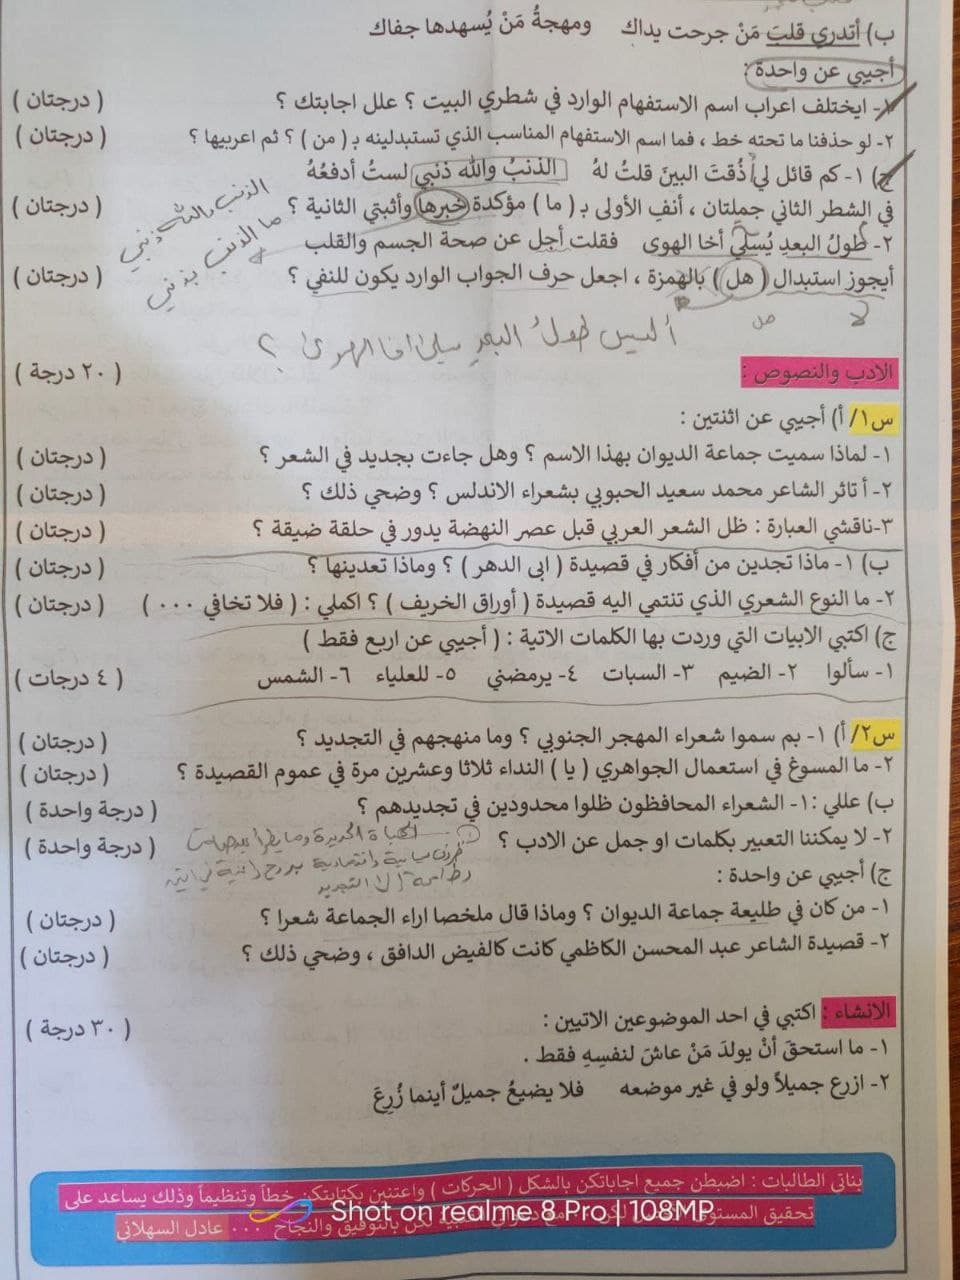 ب) أتدري قلبَ مَنْ جرحت يداك ومهجةُ مَنْ يُسهدها جفاك
أجيبي عن واحدة :
١- ايختلف اعراب اسم الاستفهام الوارد في شطري البيت ؟ علل اجابتك ؟ ( درجتان )
٢- لو حذفنا ما تحته خط ، فما اسم الاستفهام المناسب الذي تستبدلينه بـ ( من ) ؟ ثم اعربيها ؟ ( درجتان )
ج) ١- كم قائل لي أذُقتَ البينَ قلتُ لهُ الذنبُ والله ذنبي لستُ أدفعُهُ
في الشطر الثاني جملتان ، أنفِ الأولى بـ ( ما ) مؤكدة خبرها وأثبتي الثانية ؟ ( درجتان )
الذنب والله ذنبي
ما الذنب بذنبي
٢- طولُ البعدِ يُسلي أخا الهوى فقلت أجل عن صحة الجسم والقلب
أيجوز استبدال ( هل ) بالهمزة ، اجعل حرف الجواب الوارد يكون للنفي ؟ ( درجتان )
لا هل
أليس طولُ البعدِ يسلي اخا الهوى ؟
الادب والنصوص : ( ٢٠ درجة )
س١/ أ) أجيبي عن اثنتين :
١- لماذا سميت جماعة الديوان بهذا الاسم ؟ وهل جاءت بجديد في الشعر ؟ ( درجتان )
٢- أ تاثر الشاعر محمد سعيد الحبوبي بشعراء الاندلس ؟ وضحي ذلك ؟ ( درجتان )
٣-ناقشي العبارة : ظل الشعر العربي قبل عصر النهضة يدور في حلقة ضيقة ؟ ( درجتان )
ب) ١- ماذا تجدين من أفكار في قصيدة ( ابى الدهر ) ؟ وماذا تعدينها ؟ ( درجتان )
٢- ما النوع الشعري الذي تنتمي اليه قصيدة ( أوراق الخريف ) ؟ اكملي : ( فلا تخافي ٠٠٠ ) ( درجتان )
ج) اكتبي الابيات التي وردت بها الكلمات الاتية : ( أجيبي عن اربع فقط )
١- سألوا ٢- الضيم ٣- السبات ٤- يرمضني ٥- للعلياء ٦- الشمس ( ٤ درجات )
س٢/ أ) ١- بم سموا شعراء المهجر الجنوبي ؟ وما منهجهم في التجديد ؟ ( درجتان )
٢- ما المسوغ في استعمال الجواهري ( يا ) النداء ثلاثا وعشرين مرة في عموم القصيدة ؟ ( درجتان )
ب) عللي :١- الشعراء المحافظون ظلوا محدودين في تجديدهم ؟ ( درجة واحدة )
٢- لا يمكننا التعبير بكلمات او جمل عن الادب ؟ ( درجة واحدة )
الحياة الجديدة وما يطرأ
سياسية واقتصادية
التجديد
ج) أجيبي عن واحدة :
١- من كان في طليعة جماعة الديوان ؟ وماذا قال ملخصا اراء الجماعة شعرا ؟ ( درجتان )
٢- قصيدة الشاعر عبد المحسن الكاظمي كانت كالفيض الدافق ، وضحي ذلك ؟ ( درجتان )
الانشاء : اكتبي في احد الموضوعين الاتيين : ( ٣٠ درجة )
١- ما استحقَ أنْ يولدَ مَنْ عاشَ لنفسِهِ فقط .
٢- ازرع جميلاً ولو في غير موضعه فلا يضيعُ جميلٌ أينما زُرِعَ
بناتي الطالبات : اضبطن جميع اجاباتكن بالشكل ( الحركات ) واعتنين بكتابتكن خطاً وتنظيماً وذلك يساعد على
تحقيق المستوى لكن بالتوفيق والنجاح ٠٠٠ عادل السهلاني
Shot on realme 8 Pro | 108MP